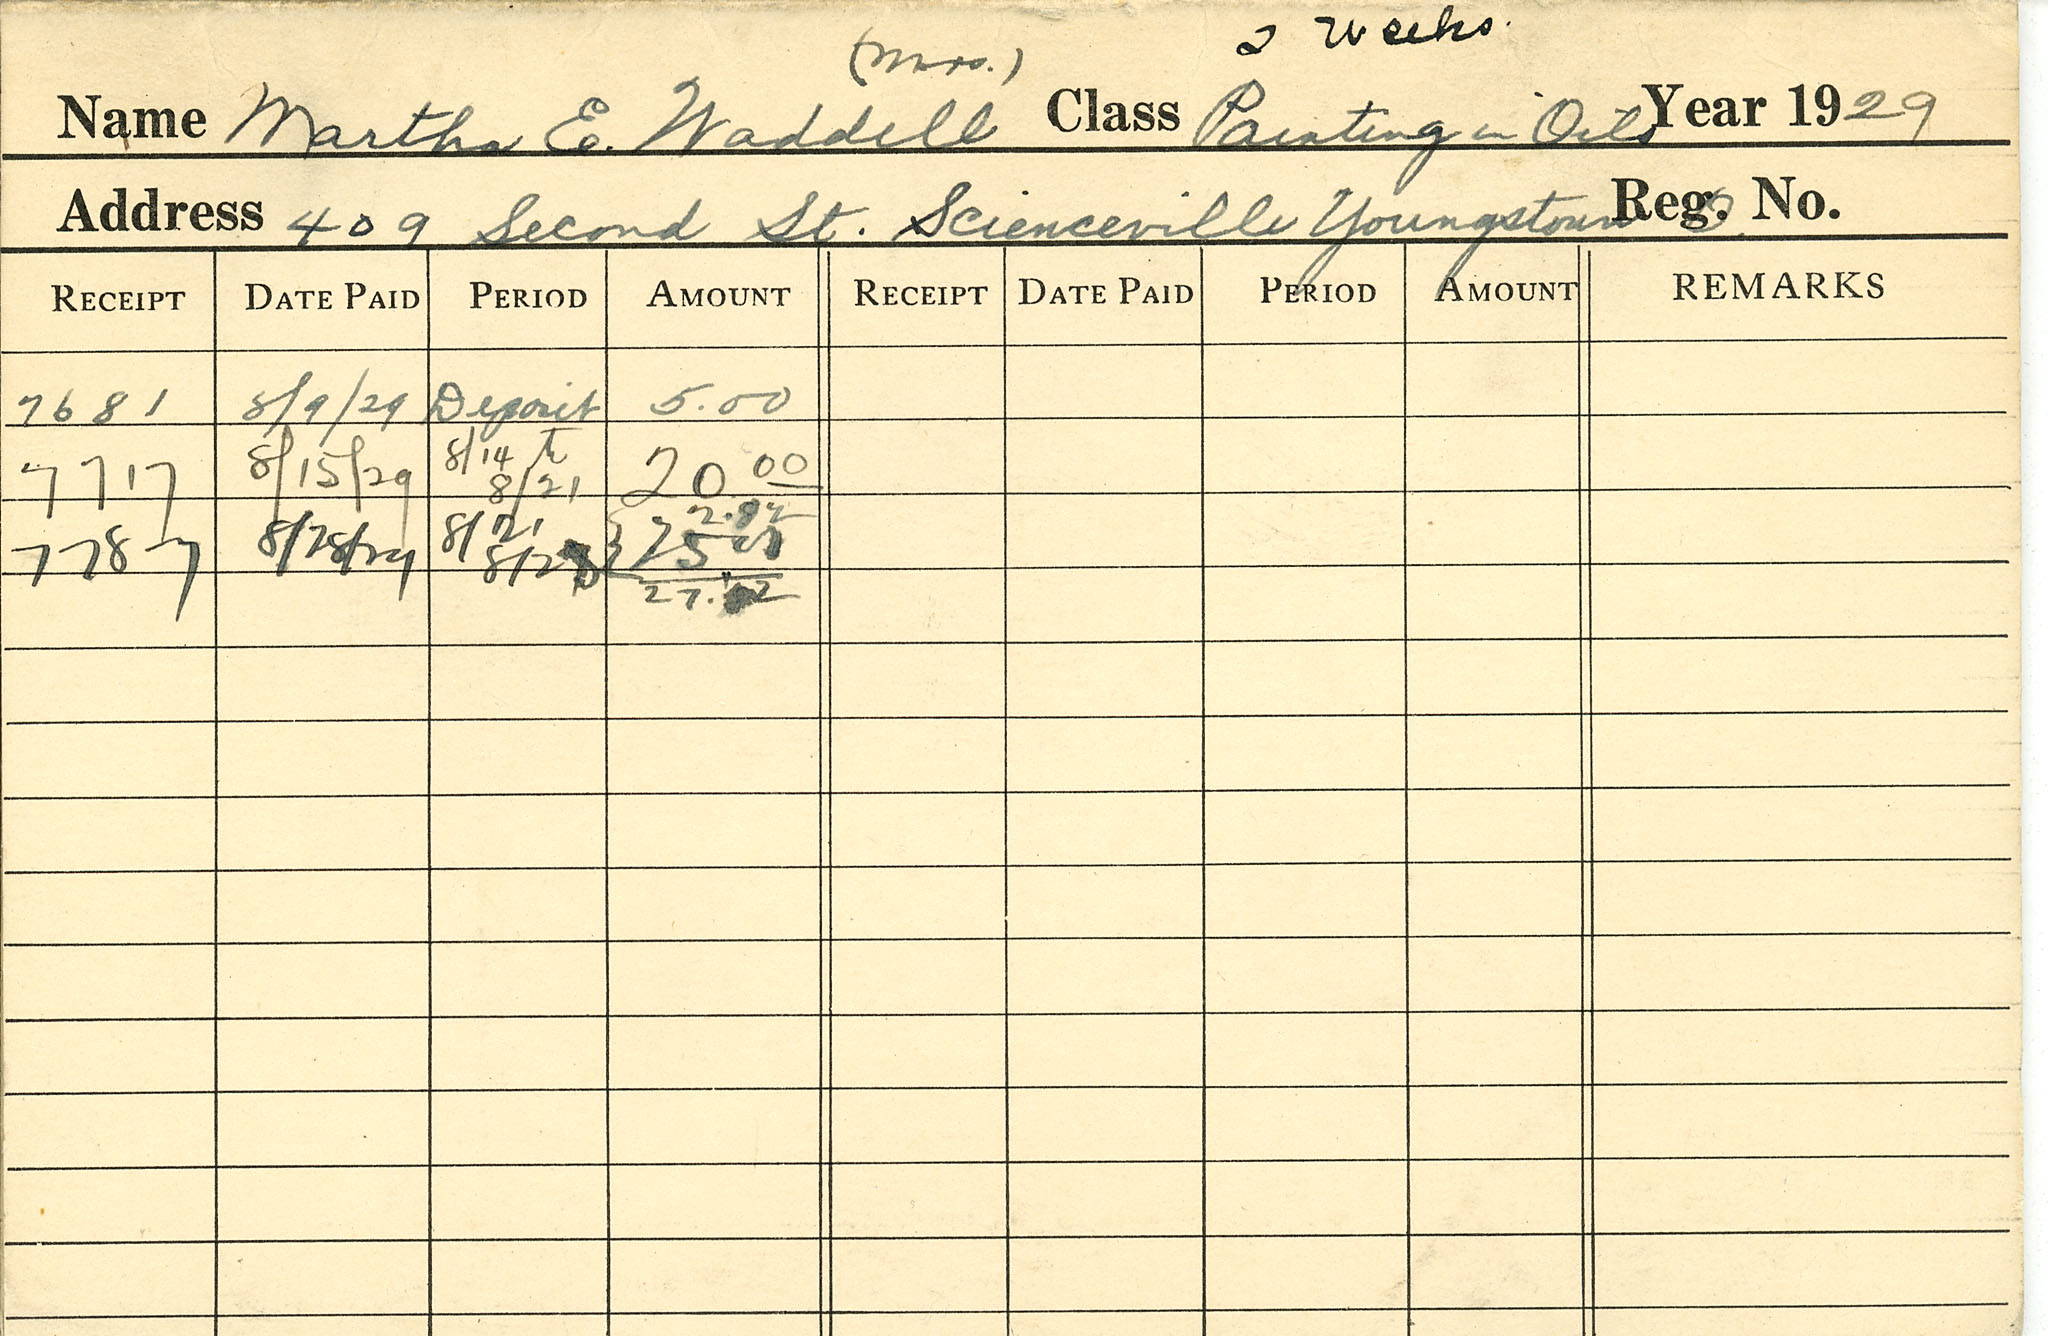 2 Weeks.
(Mrs.)
Name Martha E. Waddell Class Painting in Oils Year 1929
Address 409 Second St. Scienceville Youngstown O. Reg. No.
RECEIPT DATE PAID PERIOD AMOUNT RECEIPT DATE PAID PERIOD AMOUNT REMARKS
7681 8/9/29 Deposit 5.00
7717 8/15/29 8/14 to 8/21 20.00
2.82
7787 8/28/29 8/21 25.00
27.82